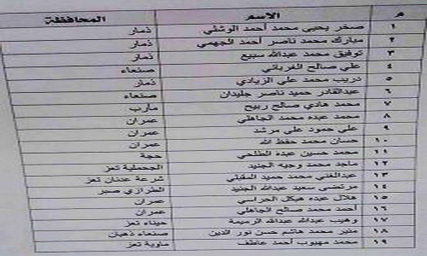 م الاسم المحافظة
١ صخر يحيى محمد أحمد الوشلي ذمار
٢ مبارك محمد ناصر أحمد الجهمي ذمار
٣ توفيق محمد عبدالله سبيع ذمار
٤ علي صالح الغرباني صنعاء
٥ دريب محمد علي الزيادي ذمار
٦ عبدالقادر حميد ناصر جليدان صنعاء
٧ محمد هادي صالح ربيح مأرب
٨ محمد عبده محمد الجاهلي عمران
٩ علي حمود علي مرشد عمران
١٠ حسان محمد حفظ الله عمران
١١ محمد حسين عبده الطلحي حجة
١٢ ماجد محمد وجيه الجنيد الجحملية تعز
١٣ عبدالغني محمد حميد المقبلي شرعة عدنان تعز
١٤ مرتضى سعيد عبدالله الجنيد الطرازي صبر
١٥ هلال عبده هيكل الحراسي عمران
١٦ أحمد محمد صالح الجاهلي عمران
١٧ وهيب عبدالله عبدالله الرميمة تعز
١٨ منير محمد هاشم حسن نور الدين صنعاء ذهبان
١٩ محمد مهيوب أحمد عاطف ماوية تعز